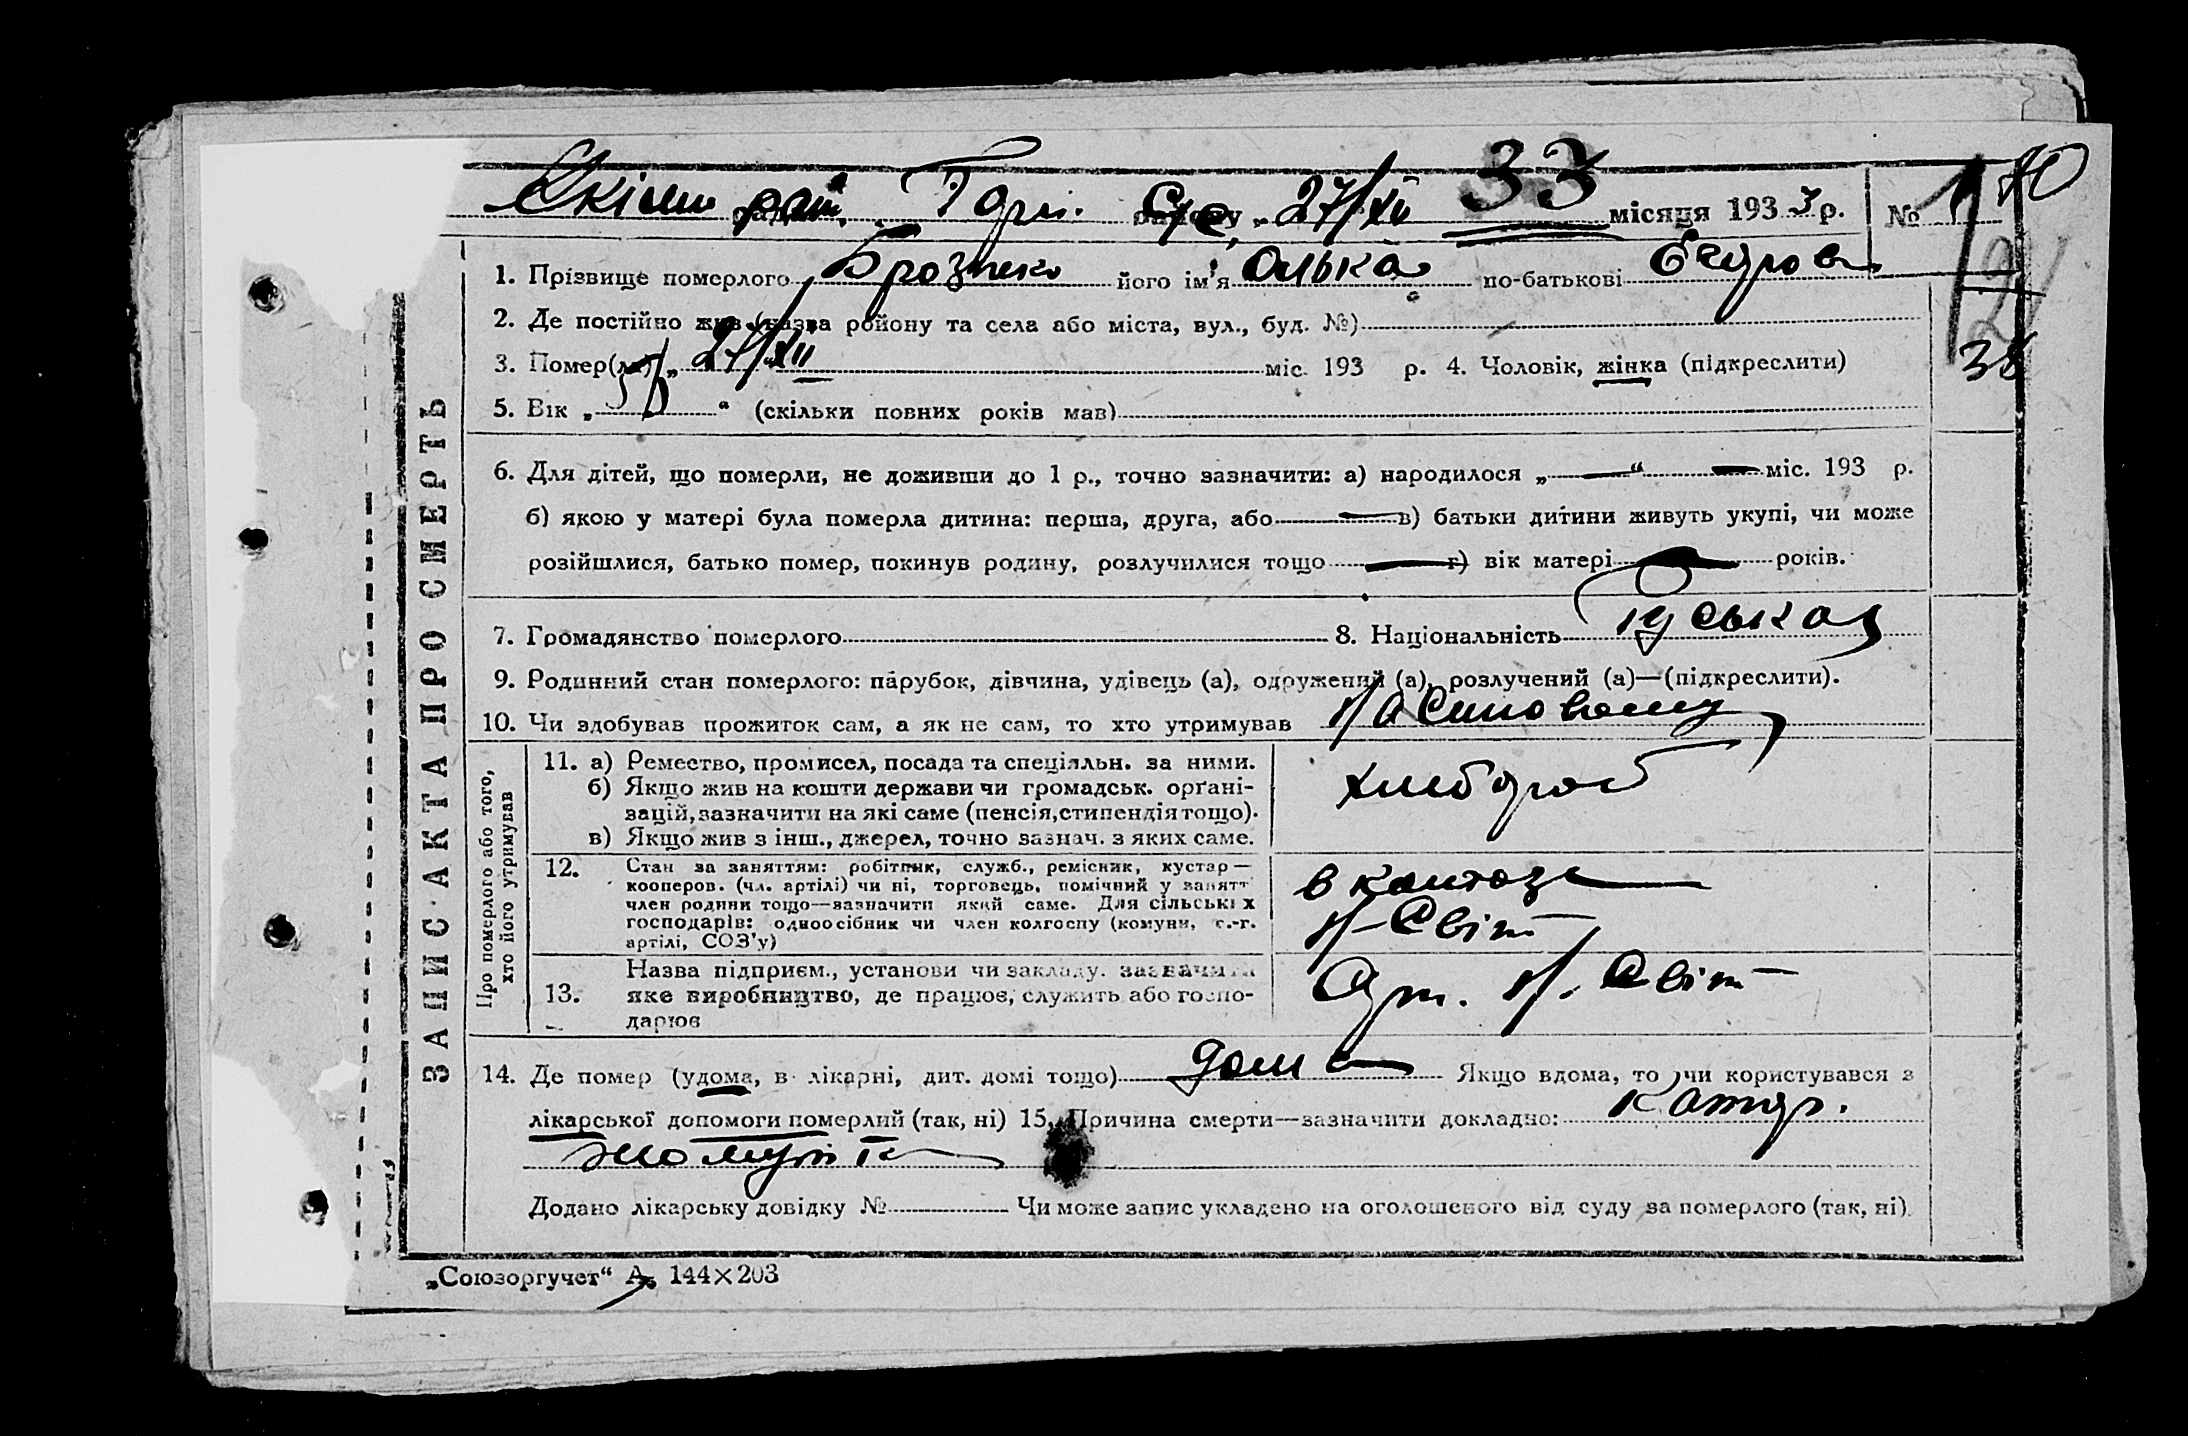 рай. Горн. С/С. 27/XII 33 місяця 1933 р. №
1. Прізвище померлого його ім'я Олька по-батькові
2. Де постійно жив (назва району та села або міста, вул., буд. №)
3. Помер(ла) „ 27/XII міс. 193 р. 4. Чоловік, жінка (підкреслити)
38
5. Вік „ “ (скільки повних років мав)
6. Для дітей, що померли, не доживши до 1 р., точно зазначити: а) народилося „—“ — міс. 193 р.
б) якою у матері була померла дитина: перша, друга, або — в) батьки дитини живуть укупі, чи може
розійшлися, батько помер, покинув родину, розлучилися тощо — г) вік матері — років.
7. Громадянство померлого 8. Національність Руська
9. Родинний стан померлого: парубок, дівчина, удівець (а), одружений (а), розлучений (а)—(підкреслити).
10. Чи здобував прожиток сам, а як не сам, то хто утримував
ЗАПИС АКТА ПРО СМЕРТЬ
Про померлого або того, хто його утримував
11. а) Ремество, промисел, посада та спеціяльн. за ними.
б) Якщо жив на кошти держави чи громадськ. орґані-
зацій, зазначити на які саме (пенсія, стипендія тощо).
в) Якщо жив з інш., джерел, точно зазнач. з яких саме.
хлебороб
12. Стан за заняттям: робітник, служб., ремісник, кустар—
кооперов. (чл. артілі) чи ні, торговець, помічний у занятт
член родини тощо—зазначити який саме. Для сільських
господарів: одноосібник чи член колгоспу (комуни, с.-г.
артілі, СОЗ'у)
в колгозе
Н-Світ
13. Назва підприєм., установи чи закладу. зазначити
яке виробництво, де працює, служить або госпо-
дарює
Арт. Н. Світ
14. Де помер (удома, в лікарні, дит. домі тощо) дома Якщо вдома, то чи користувався з
лікарської допомоги померлий (так, ні) 15. Причина смерти—зазначити докладно:
Додано лікарську довідку № Чи може запис укладено на оголошеного від суду за померлого (так, ні)
„Союзоргучет“ 144×203